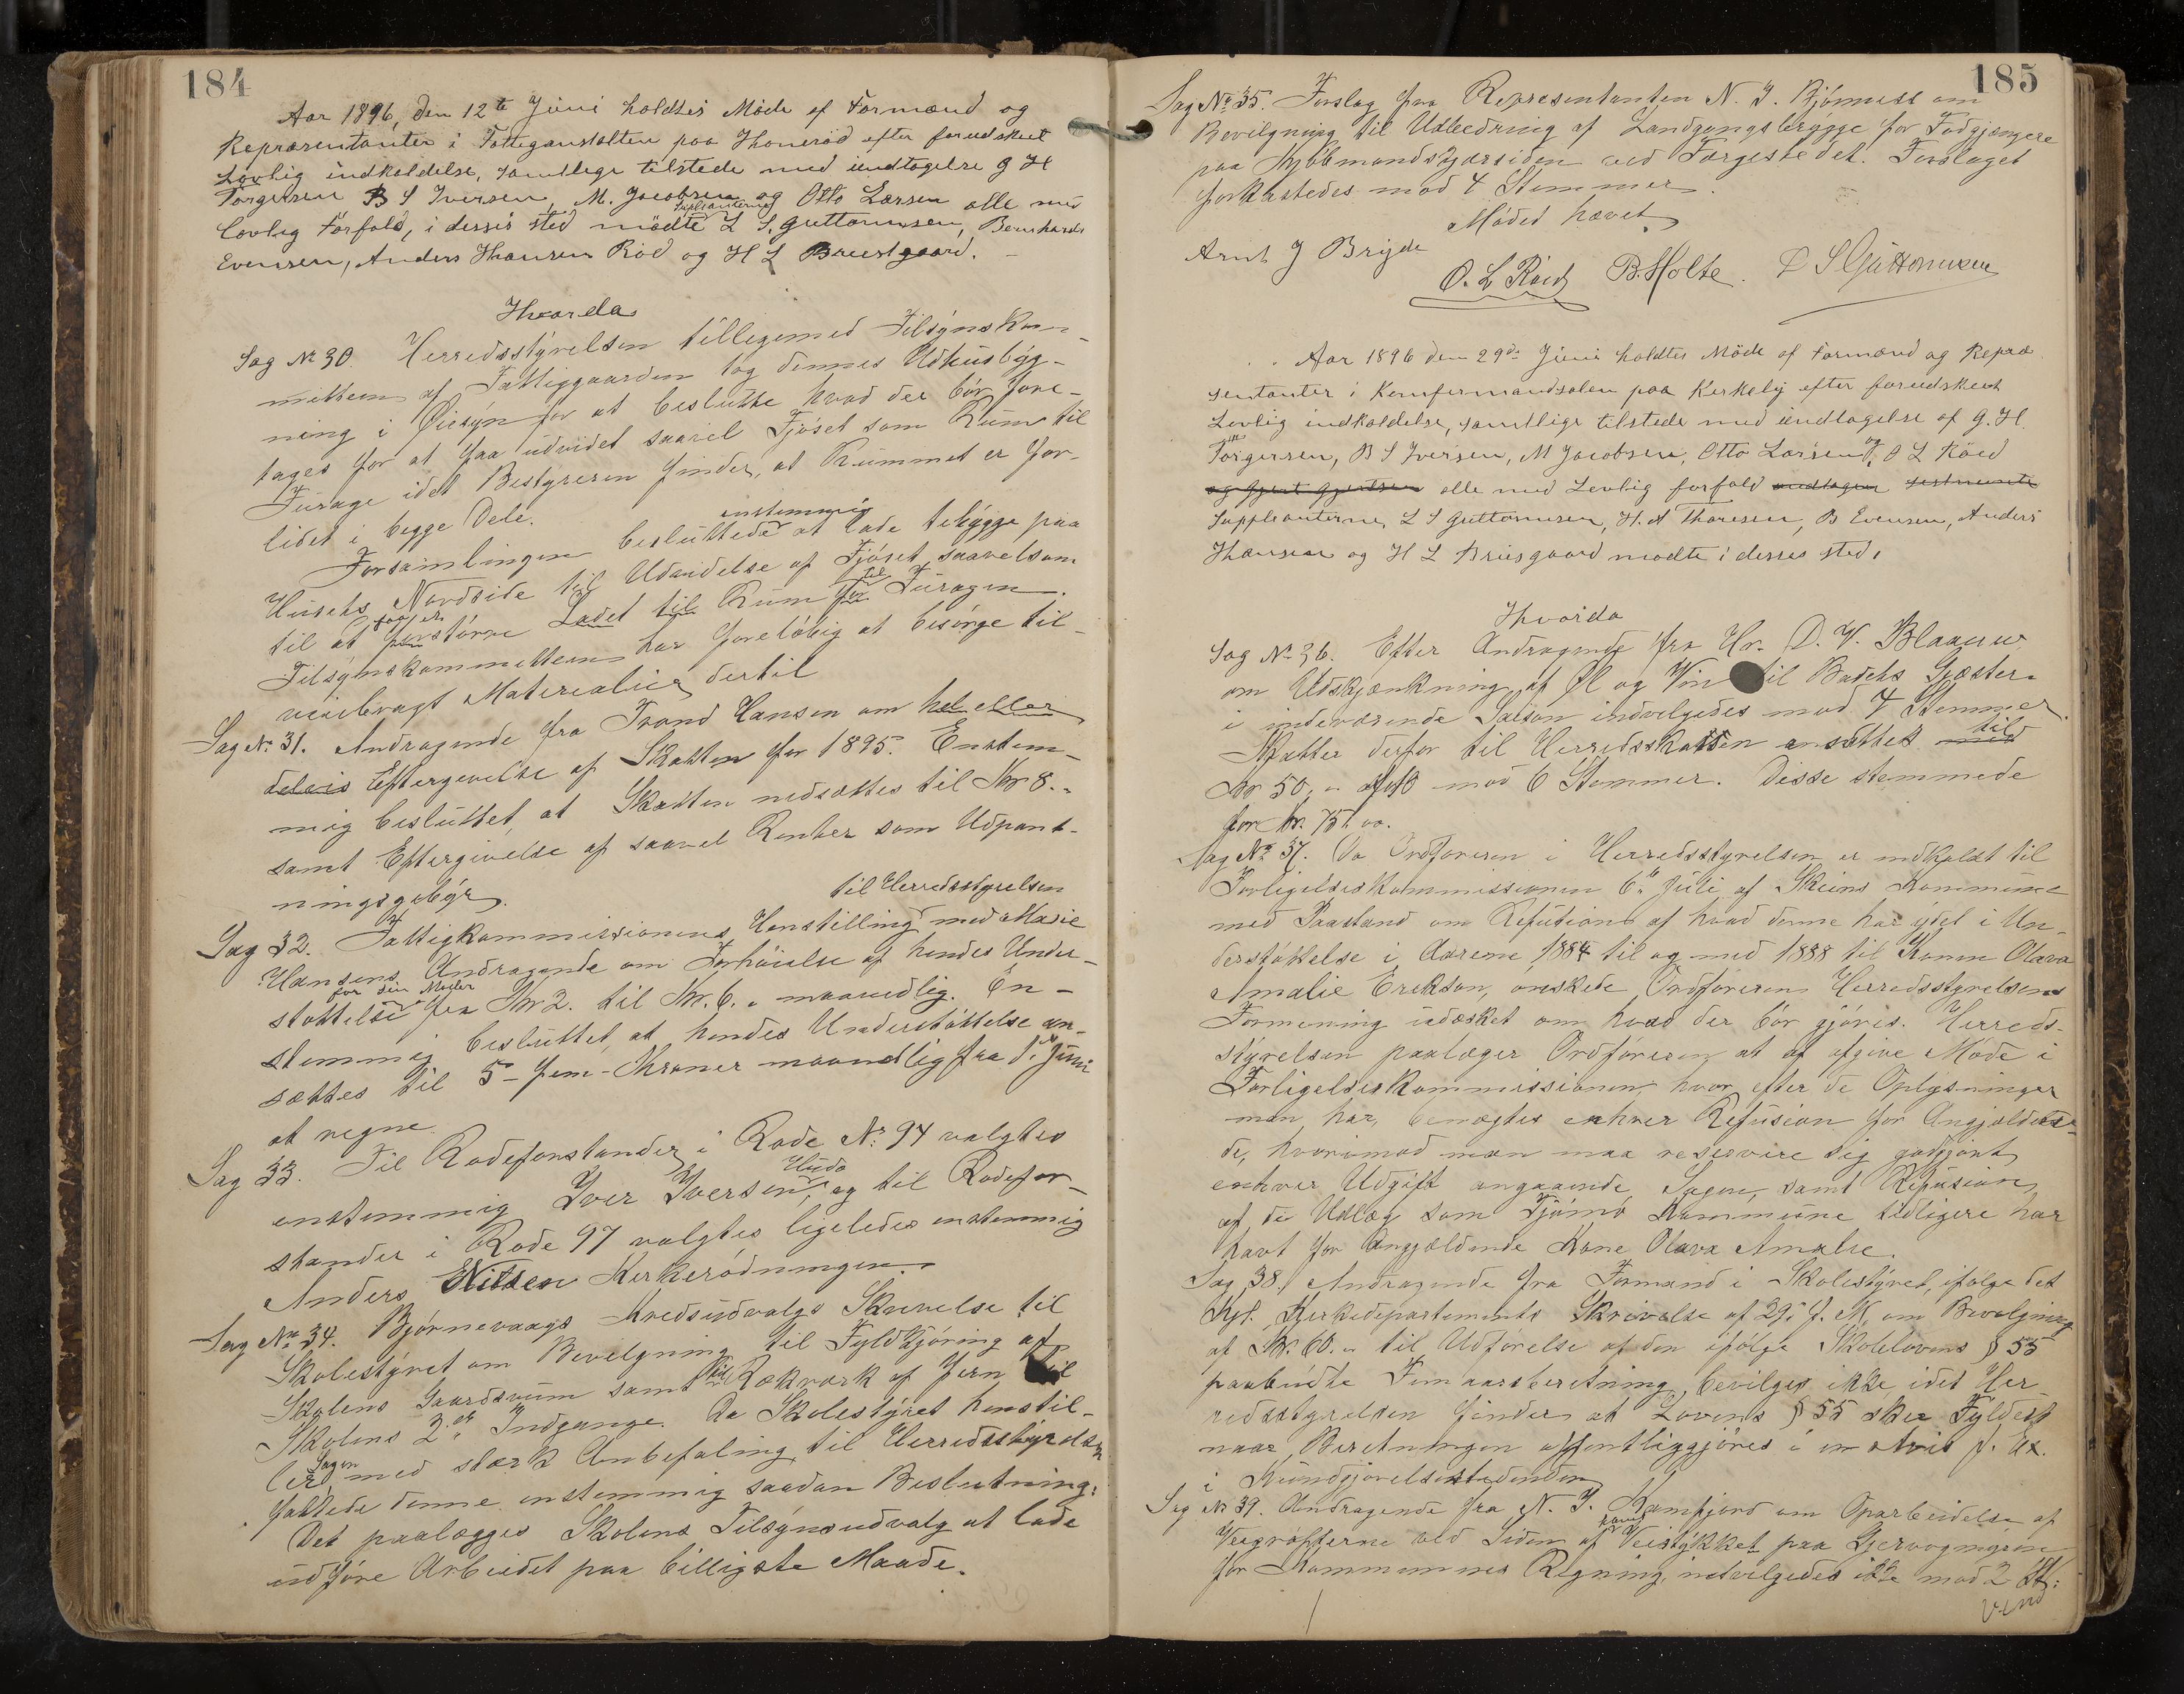 184
Aar 1896, den 12te Juni holdtes Møde af Formænd og
Repræsentanter i Fattiganstalten paa Thonerød efter forudskeet
Lovlig indkaldelse, samtlige tilstede med undtagelse G H
Torgersen B S Iversen, M. Jacobsen og Otto Larsen alle med
lovlig Forfald, i desses sted mødte Suplianterne L S. Guttormsen, Bernhard
Evensen, Anders Hansen Rød og H L Bruusgaard. –
Hvorda
Sag No 30. Herredsstyrelsen tilligemed Tilsynskom-
mitteen af Fattiggaarden tog dennes Udhusbyg-
ning i Øiesyn for at beslutte hvad der bør fore-
tages for at faa udvidet saavel Fjøset som Rum til
Furage idet Bestyreren finder, at Rummet er for
lidet i begge Dele.
Forsamlingen besluttede enstemmig at lade tilbygge paa
Husets Nordside til Udvidelse af Fjøset saavelsom
til at faa større Ladet til Rum for til Furagen.
Tilsynskommitteen har foreløbig at besørge til-
veiebragt Materialier dertil
Sag No 31. Andragende fra Trond Hansen om hel eller
delvis Eftergivelse af Skatten for 1895. Enstem-
mig besluttet, at Skatten nedsættes til Kr 8.„
samt Eftergivelse af saavel Renter som Udpant-
ningsgebyr.
Sag 32. Fattigkommissionens Henstilling til Herredsstyrelsen med Marie
Hansens Andragende om Forhøielse af hendes Under-
støttelse for sin Moder fra Kr 2. til Kr. 6.„ maanedlig. En-
stemmig besluttet, at hendes Understøttelse an-
sættes til 5 - fem - Kroner maanedlig fra 1. Juni
at regne.
Sag 33. Til Rodeforstander i Rode No 94 valgtes
enstemmig Iver Iversen, Hudø og til Rodefor-
stander i Rode 97 valgtes ligeledes enstemmig
Anders Nilsen Kirkerødningen.
Sag No 34. Bjørnevaags Kredsudvalgs Skrivelse til
Skolestyret om Bevilgning til Fyldkjøring af
Skolens Gaardsrum samt til Rækværk af Jern til
Skolens 2de Indgange. Da Skolestyret henstil-
ler Sagen med stærk Anbefaling til Herredsstyrelsen
fattede denne enstemmig saadan Beslutning:
Det paalægges Skolens Tilsynsudvalg at lade
udføre Arbeidet paa billigste Maade.
185
Sag No 35. Forslag fra Repræsentanten N. J. Bjønness om
Bevilgning til Udbedring af Landgangsbrygge for Fodgjængere
paa Kjøbmandskjærsiden ved Færgestedet. Forslaget
forkastedes mod 4 Stemmer.
Mødet hævet
Arnt J Bryde
O. L Røed B. Holte. L S Guttormsen
Aar 1896 den 29de Juni holdtes Møde af Formænd og Repræ
sentanter i Konfermandsalen paa Kirkeby efter forudskeet
Lovlig indkaldelse, samtlige tilstede med undtagelse af G. H.
Torgersen, B S Iversen, M Jacobsen, Otto Larsen og O L Røed
og Gjert Gjertsen alle med Lovlig forfald
Supplianterne, L S Guttormsen, H. A Thoresen, B Evensen, Anders
Hansen og H L Bruusgaard mødte i desses sted.
Hvorda
Sag No 36. Efter Andragende fra Hr. D. V. Blaauw
om Udskjænkning af Øl og Vin til Badets Gjæster
i indeværende Saison indvilgedes mod 4 Stemmer.
Skatter derfor til Herredskassen ansættes med til
Kr 50.„ mod 6 Stemmer. Disse stemmede
for Kr. 75.00.
Sag No 37. Da Ordføreren i Herredsstyrelsen er indkaldt til
Forligelseskommissionen 6te Juli af Skiens Kommune
med Paastand om Refusion af hvad denne har ydet i Un-
derstøttelse i Aarene 1884 til og med 1888 til Konen Olava
Amalie Erikson, ønskede Ordføreren Herredsstyrelsens
Formening udæsket om hvad der bør gjøres. Herreds-
styrelsen paalægger Ordføreren at at afgive Møde i
Forligelseskommissionen, hvor efter de Oplysninger
man har, benægtes enhver Refusion for Angjælden-
de, hvorimod man maa reservere sig godgjort
enhver Udgift angaaende Sagen, samt Refusion
af de Udlæg som Tjømø Kommune tidligere har
havt for Angjældende Kone Olava Amalie.
Sag 38. Andragende fra Formand i Skolestyret, ifølge det
Kgl. Kirkedepartements Skrivelse af 29. f. M. om Bevilgning
af Kr. 60.„ til Udførelse af den ifølge Skolelovens § 55
paabudte Femaarsberetning, bevilges ikke idet Her
redsstyrelsen finder at Lovens § 55 sker Fyldest
naar Beretningen offentliggjøres i en Avis f. Ex.
i Kundgjørelsestidenden
Sag No 39. Andragende fra N. J. Kamfjord om Oparbeidelse af
Veigrøfterne ved Siden af Veistykket paa Gjervogmyren
for Kommunens Regning, indvilgedes ikke mod 2 St.
Vend